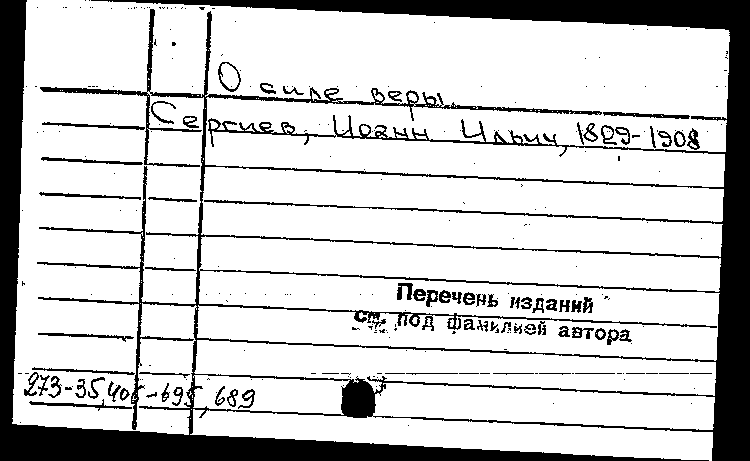 О силе веры.
Сергиев, Иоанн Ильич, 1829-1908
Перечень изданий
см. под фамилией автора
273-35, 406-695, 689